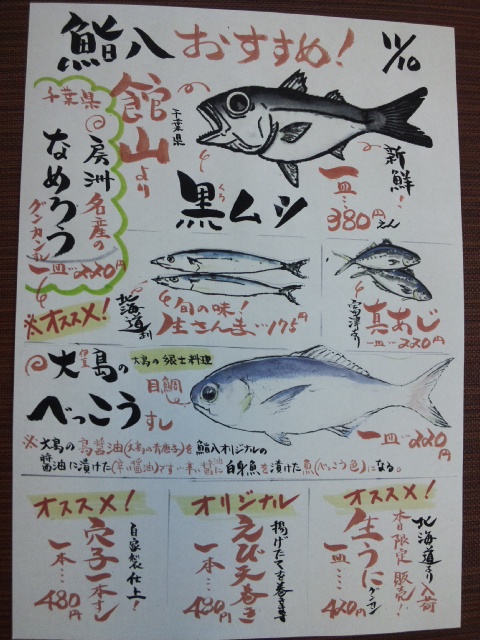 鮨八おすすめ! 11/10
千葉県
館山より
千葉県
房洲名産の
なめろう
グンカン
一皿…220円
※オススメ!
新鮮!
黒ムシ
くろ
一皿…380円
えん
北海道より
旬の味!
生さんま…175円
富津より
真あじ
一皿…220円
伊豆
大島の
べっこうすし
大島の郷土料理
目鯛
一皿…220円
※大島の島醤油(大島の青唐子)を鮨八オリジナルの
醤油に漬けた(辛い醤油)です
白身魚を漬けた魚(べっこう色)になる。
オススメ!
自家製仕上!
穴子一本すし
一本…480円
オリジナル
揚げたてを巻きます
えび天巻き
一本…480円
オススメ!
北海道より入荷
本日限定販売!
生うに
グンカン
一皿…420円